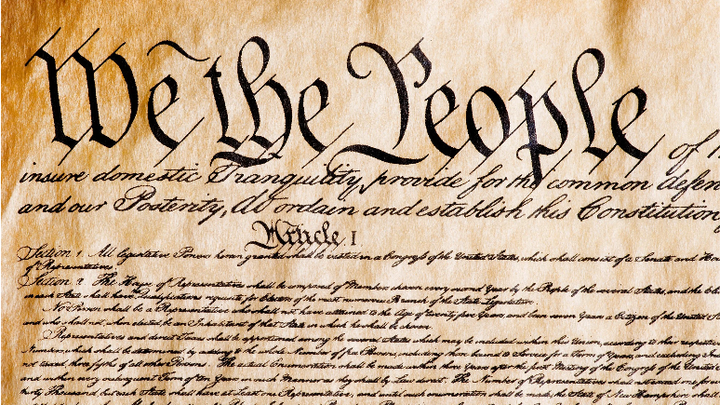 We the People of t
insure domestic Tranquility, provide for the common defen
and our Posterity, do ordain and establish this Constitution
Article I
Section 1. All legislative Powers herein granted shall be vested in a Congress of the United States, which shall consist of a Senate and Hou
of Representatives.
Section 2. The House of Representatives shall be composed of Members chosen every second Year by the People of the several States, and the
in each State shall have Qualifications requisite for Electors of the most numerous Branch of the State Legislature.
No Person shall be a Representative who shall not have attained to the Age of twenty five Years, and been seven Years a Citizen of the United
and who shall not, when elected, be an Inhabitant of that State in which he shall be chosen.
Representatives and direct Taxes shall be apportioned among the several States which may be included within this Union, according to their respective
Numbers, which shall be determined by adding to the whole Number of free Persons, including those bound to Service for a Term of Years, and excluding
not taxed, three fifths of all other Persons. The actual Enumeration shall be made within three Years after the first Meeting of the Congress of the United
and within every subsequent Term of ten Years, in such Manner as they shall by Law direct. The Number of Representatives shall not exceed one for
thirty Thousand, but each State shall have at Least one Representative; and until such enumeration shall be made, the State of New Hampshire shall